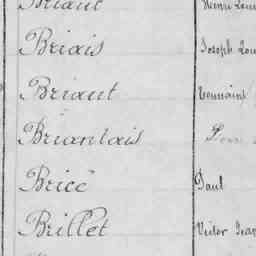 Briant Henri Loui
Briais Joseph Lou
Briant Toussaint
Briantais
Bricé Paul
Brillet Victor Jean